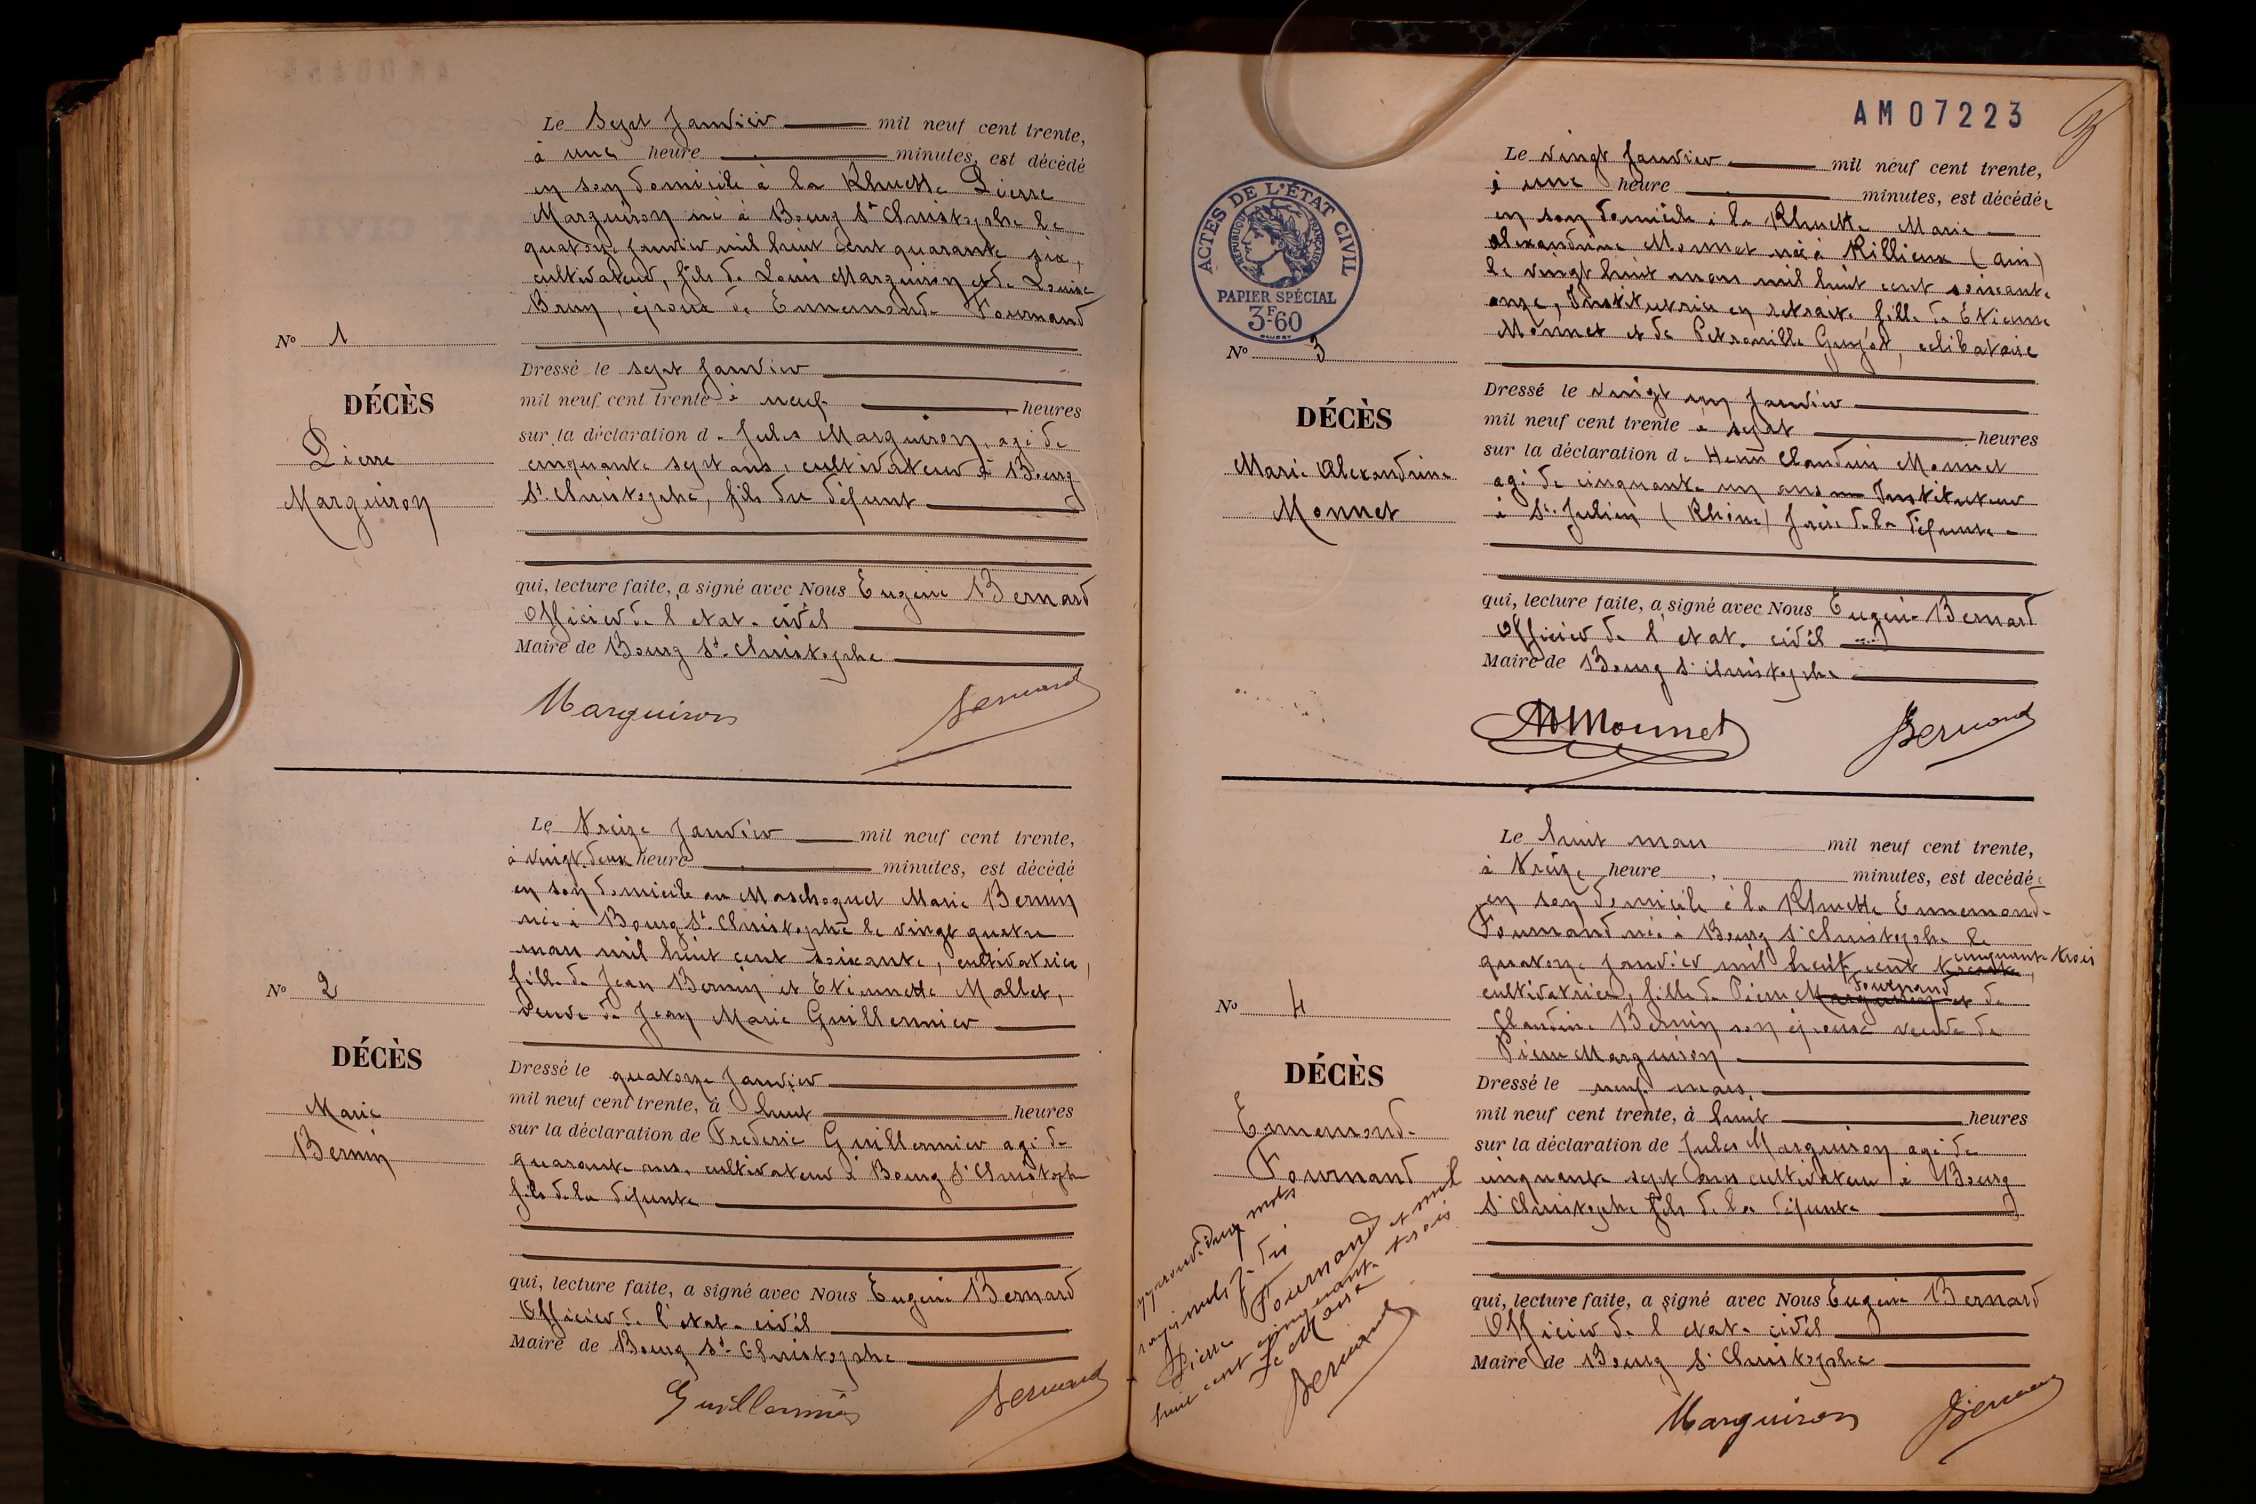 Le sept Janvier mil neuf cent trente,
à une heure minutes, est décédé
en son domicile à la Rhuette Pierre
Marguiron né à Bourg St Christophe le
quatorze janvier mil huit cent quarante six,
cultivateur, fils de Louis Marguiron et de Louise
Bruy, époux de Ennemonde Fournand
No 1
DÉCÈS
Pierre
Marguiron
Dressé le sept Janvier
mil neuf cent trente à neuf heures
sur la déclaration de Jules Marguiron, agé de
cinquante sept ans, cultivateur à Bourg
St Christophe, fils du défunt
qui, lecture faite, a signé avec Nous Eugène Bernard
Officier de l'etat-civil
Maire de Bourg St-Christophe
Marguiron Bernard
Le treize Janvier mil neuf cent trente,
à vingt deux heure minutes, est décédé
en son domicile au Maschoguet Marie Bernin
née à Bourg St Christophe le vingt quatre
mars mil huit cent soixante, cultivatrice,
fille de Jean Bernin et Etiennette Mallet,
veuve de Jean Marie Guillermier
No 2
DÉCÈS
Marie
Bernin
Dressé le quatorze Janvier
mil neuf cent trente, à huit heures
sur la déclaration de Frederic Guillermier agé de
quarante ans, cultivateur à Bourg St Christophe
fils de la défunte
qui, lecture faite, a signé avec Nous Eugène Bernard
Officier de l'etat-civil
Maire de Bourg St-Christophe
Guillermier Bernard
AM07223
ACTES DE L'ÉTAT CIVIL
RÉPUBLIQUE FRANÇAISE
PAPIER SPÉCIAL
3F60
Le vingt Janvier mil neuf cent trente,
à une heure minutes, est décédée
en son domicile à la Rhuette Marie
Alexandrine Monnet née à Rillieux (Ain)
le vingt huit mars mil huit cent soixante
onze, Institutrice en retraite fille de Etienne
Monnet et de Petronille Guyot, celibataire
No 3
DÉCÈS
Marie Alexandrine
Monnet
Dressé le vingt un Janvier
mil neuf cent trente à sept heures
sur la déclaration de Henri Claudius Monnet
agé de cinquante un ans Instituteur
à St-Julien (Rhône) frère de la défunte
qui, lecture faite, a signé avec Nous Eugène Bernard
Officier de l'etat-civil
Maire de Bourg St Christophe
Monnet Bernard
Le huit mars mil neuf cent trente,
à treize heure minutes, est decédée
en son domicile à la Rhuette Ennemonde
Fournand née à Bourg St Christophe le
quatorze janvier mil huit cent trente cinquante trois,
cultivatrice, fille de Pierre Marguiron Fournand et de
Claudine Bernin son épouse veuve de
Pierre Marguiron
No 4
DÉCÈS
Ennemonde
Fournand
Dressé le neuf mars
mil neuf cent trente, à huit heures
sur la déclaration de Jules Marguiron agé de
cinquante sept ans cultivateur à Bourg
St Christophe fils de la défunte
qui, lecture faite, a signé avec Nous Eugène Bernard
Officier de l'etat-civil
Maire de Bourg St Christophe
Marguiron Bernard
approuvé deux mots
rayés nuls
Pierre Fournand et mil
huit cent cinquante trois
Le Maire
Bernard